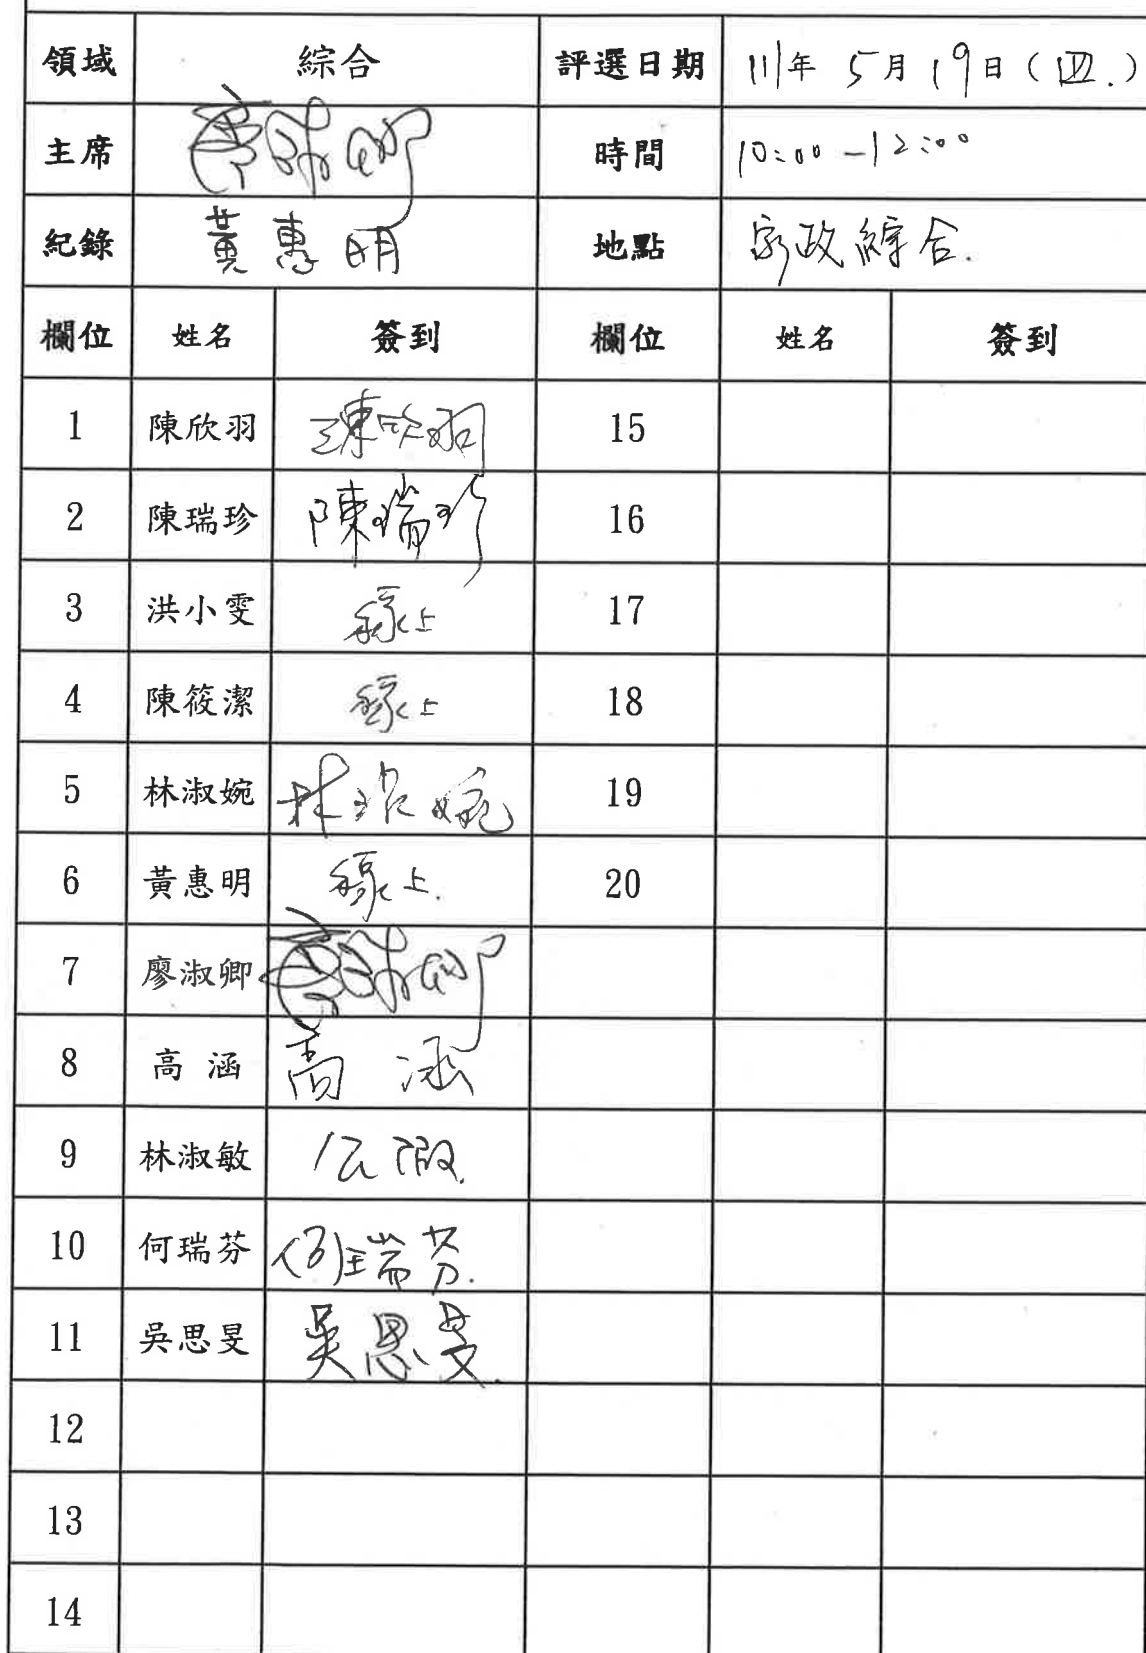 領域 綜合 評選日期 111年 5月19日(四.)
主席 廖淑卿 時間 10:00-12:00
紀錄 黃惠明 地點 家政綜合.
欄位 姓名 簽到 欄位 姓名 簽到
1 陳欣羽 陳欣羽 15
2 陳瑞珍 陳瑞珍 16
3 洪小雯 線上 17
4 陳筱潔 線上 18
5 林淑婉 林淑婉 19
6 黃惠明 線上. 20
7 廖淑卿 廖淑卿
8 高涵 高涵
9 林淑敏 公假.
10 何瑞芬 何瑞芬.
11 吳思旻 吳思旻.
12
13
14